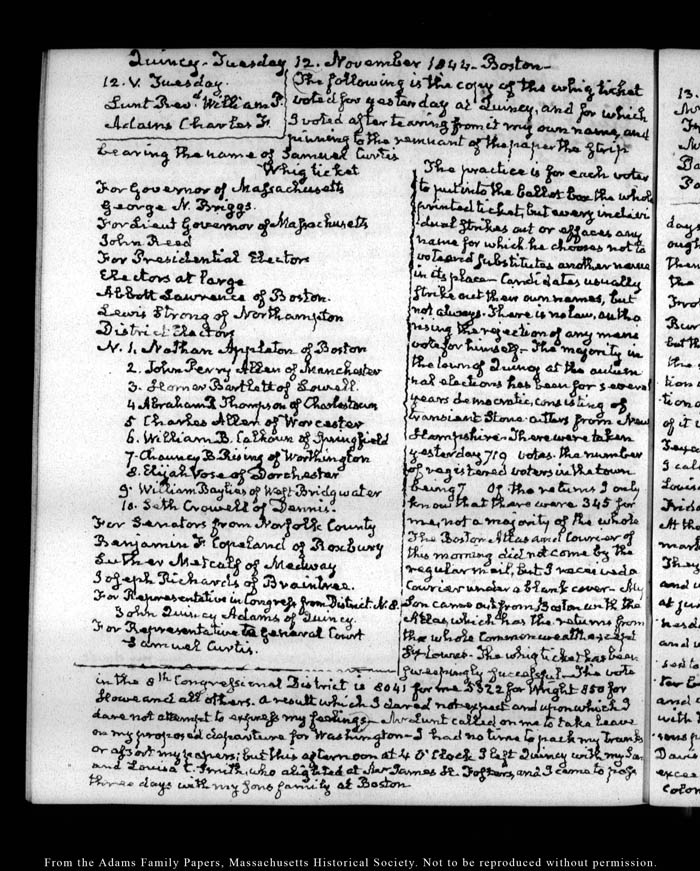 Quincy. Tuesday 12. November 1844. Boston
12. V. Tuesday.
Lunt Rev.d William P.
Adams Charles F.
The following is the copy of the whig ticket
voted for yesterday at Quincy, and for which
I voted after tearing from it my own name, and
pinning to the remnant of the paper the strip
bearing the name of Samuel Curtis
Whig ticket
For Governor of Massachusetts
George N. Briggs.
For Lieut Governor of Massachusetts
John Reed
For Presidential Electors
Electors at large
Abbott Lawrence of Boston.
Lewis Strong of Northampton
District Electors
N. 1. Nathan Appleton of Boston
2. John Perry Allen of Manchester
3. Homer Bartlett of Lowell.
4 Abraham R Thompson of Charlestown
5 Charles Allen of Worcester
6. William B. Calhoun of Springfield
7. Chauncy B. Rising of Worthington
8. Elijah Vose of Dorchester
9. William Baylies of West Bridgwater
10. Seth Crowell of Dennis.
For Senators from Norfolk County
Benjamin F. Copeland of Roxbury
Luther Metcalf of Medway
Joseph Richards of Braintree.
For Representative in Congress from District N. 8.
John Quincy Adams of Quincy.
For Representative to General Court
Samuel Curtis.
The practice is for each voter
to put into the ballot box the whole
printed ticket, but every indivi
dual strikes out or effaces any
name for which he chooses not to
vote and substitutes another name
in its place. Candidates usually
strike out their own names, but
not always. There is no law, autho
rising the rejection of any mans
vote for himself. The majority in
the town of Quincy at the autum
nal elections has been for several
years democratic, consisting of
transient Stone cutters from New
Hampshire. There were taken
yesterday 719 votes. the number
of registered voters in the town
being 7 Of the returns I only
know that there were 345 for
me, not a majority of the whole
The Boston Atlas and Courier of
this morning did not come by the
regular mail, but I received a
Courier under a blank cover. My
Son came out from Boston with the
Atlas, which has the returns from
the whole Commonwealth except
towns. The whig ticket has been
surprisingly successful. The vote
in the 8th Congressional District is 8041 for me 5322 for Wright 850 for
Howe and all others. A result which I dared not expect and upon which I
dare not attempt to express my feelings. Mr Lunt called on me to take leave
on my proposed departure for Washington. I had no time to pack my trunks
or assort my papers; but this afternoon at 4 O'Clock I left Quincy with my Son
and Louisa C. Smith, who alighted at Mrs James H. Fosters, and I came to pass
three days with my Sons family at Boston
13.
days
From the Adams Family Papers, Massachusetts Historical Society. Not to be reproduced without permission.